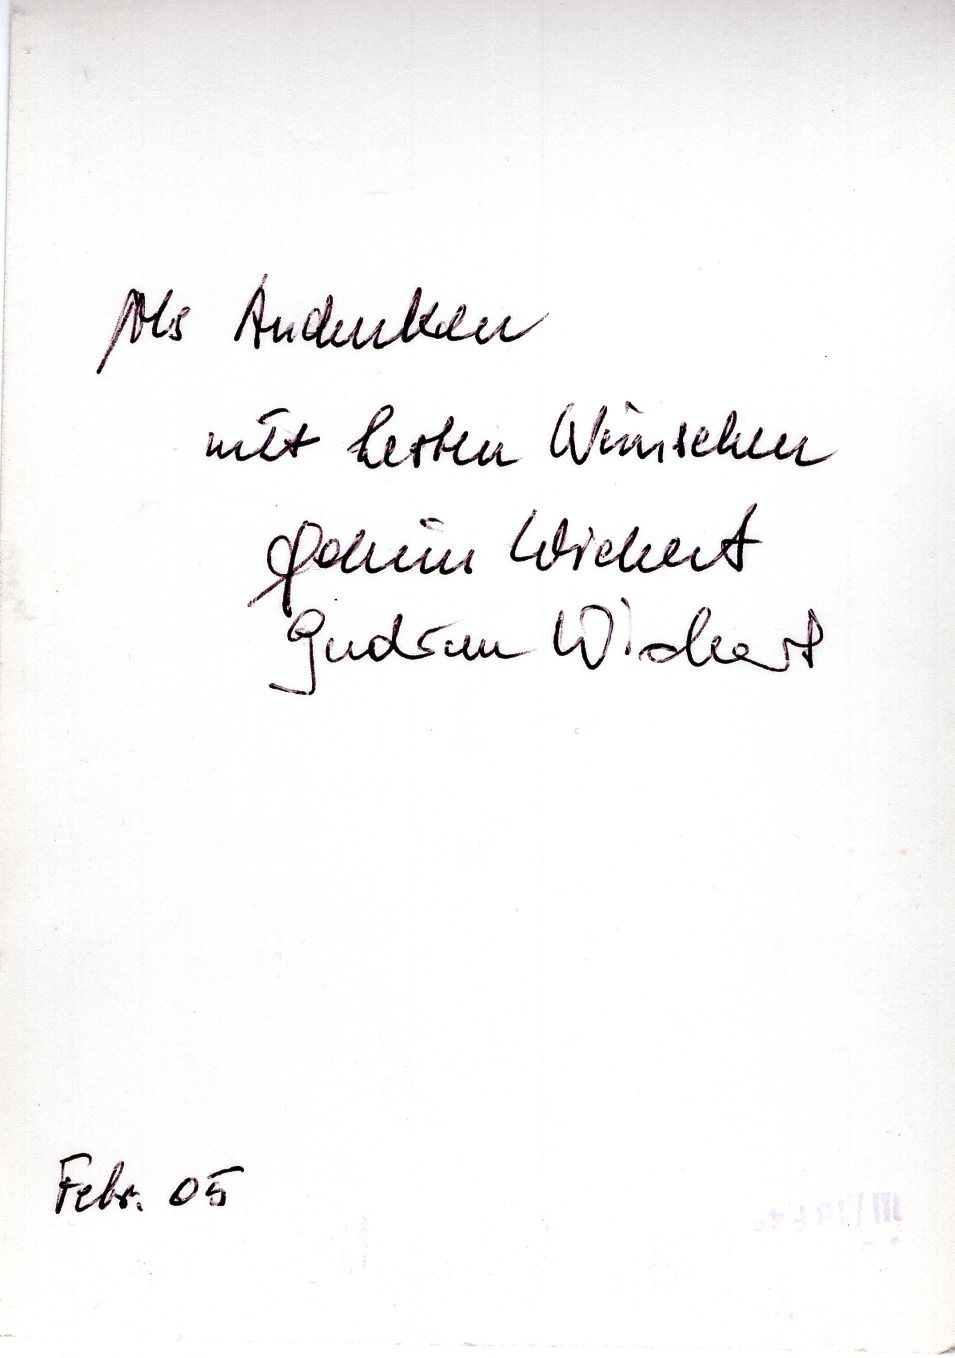 Als Andenken
mit besten Wünschen
Joachim Wichert
Gudrun Wichert
Febr. 05